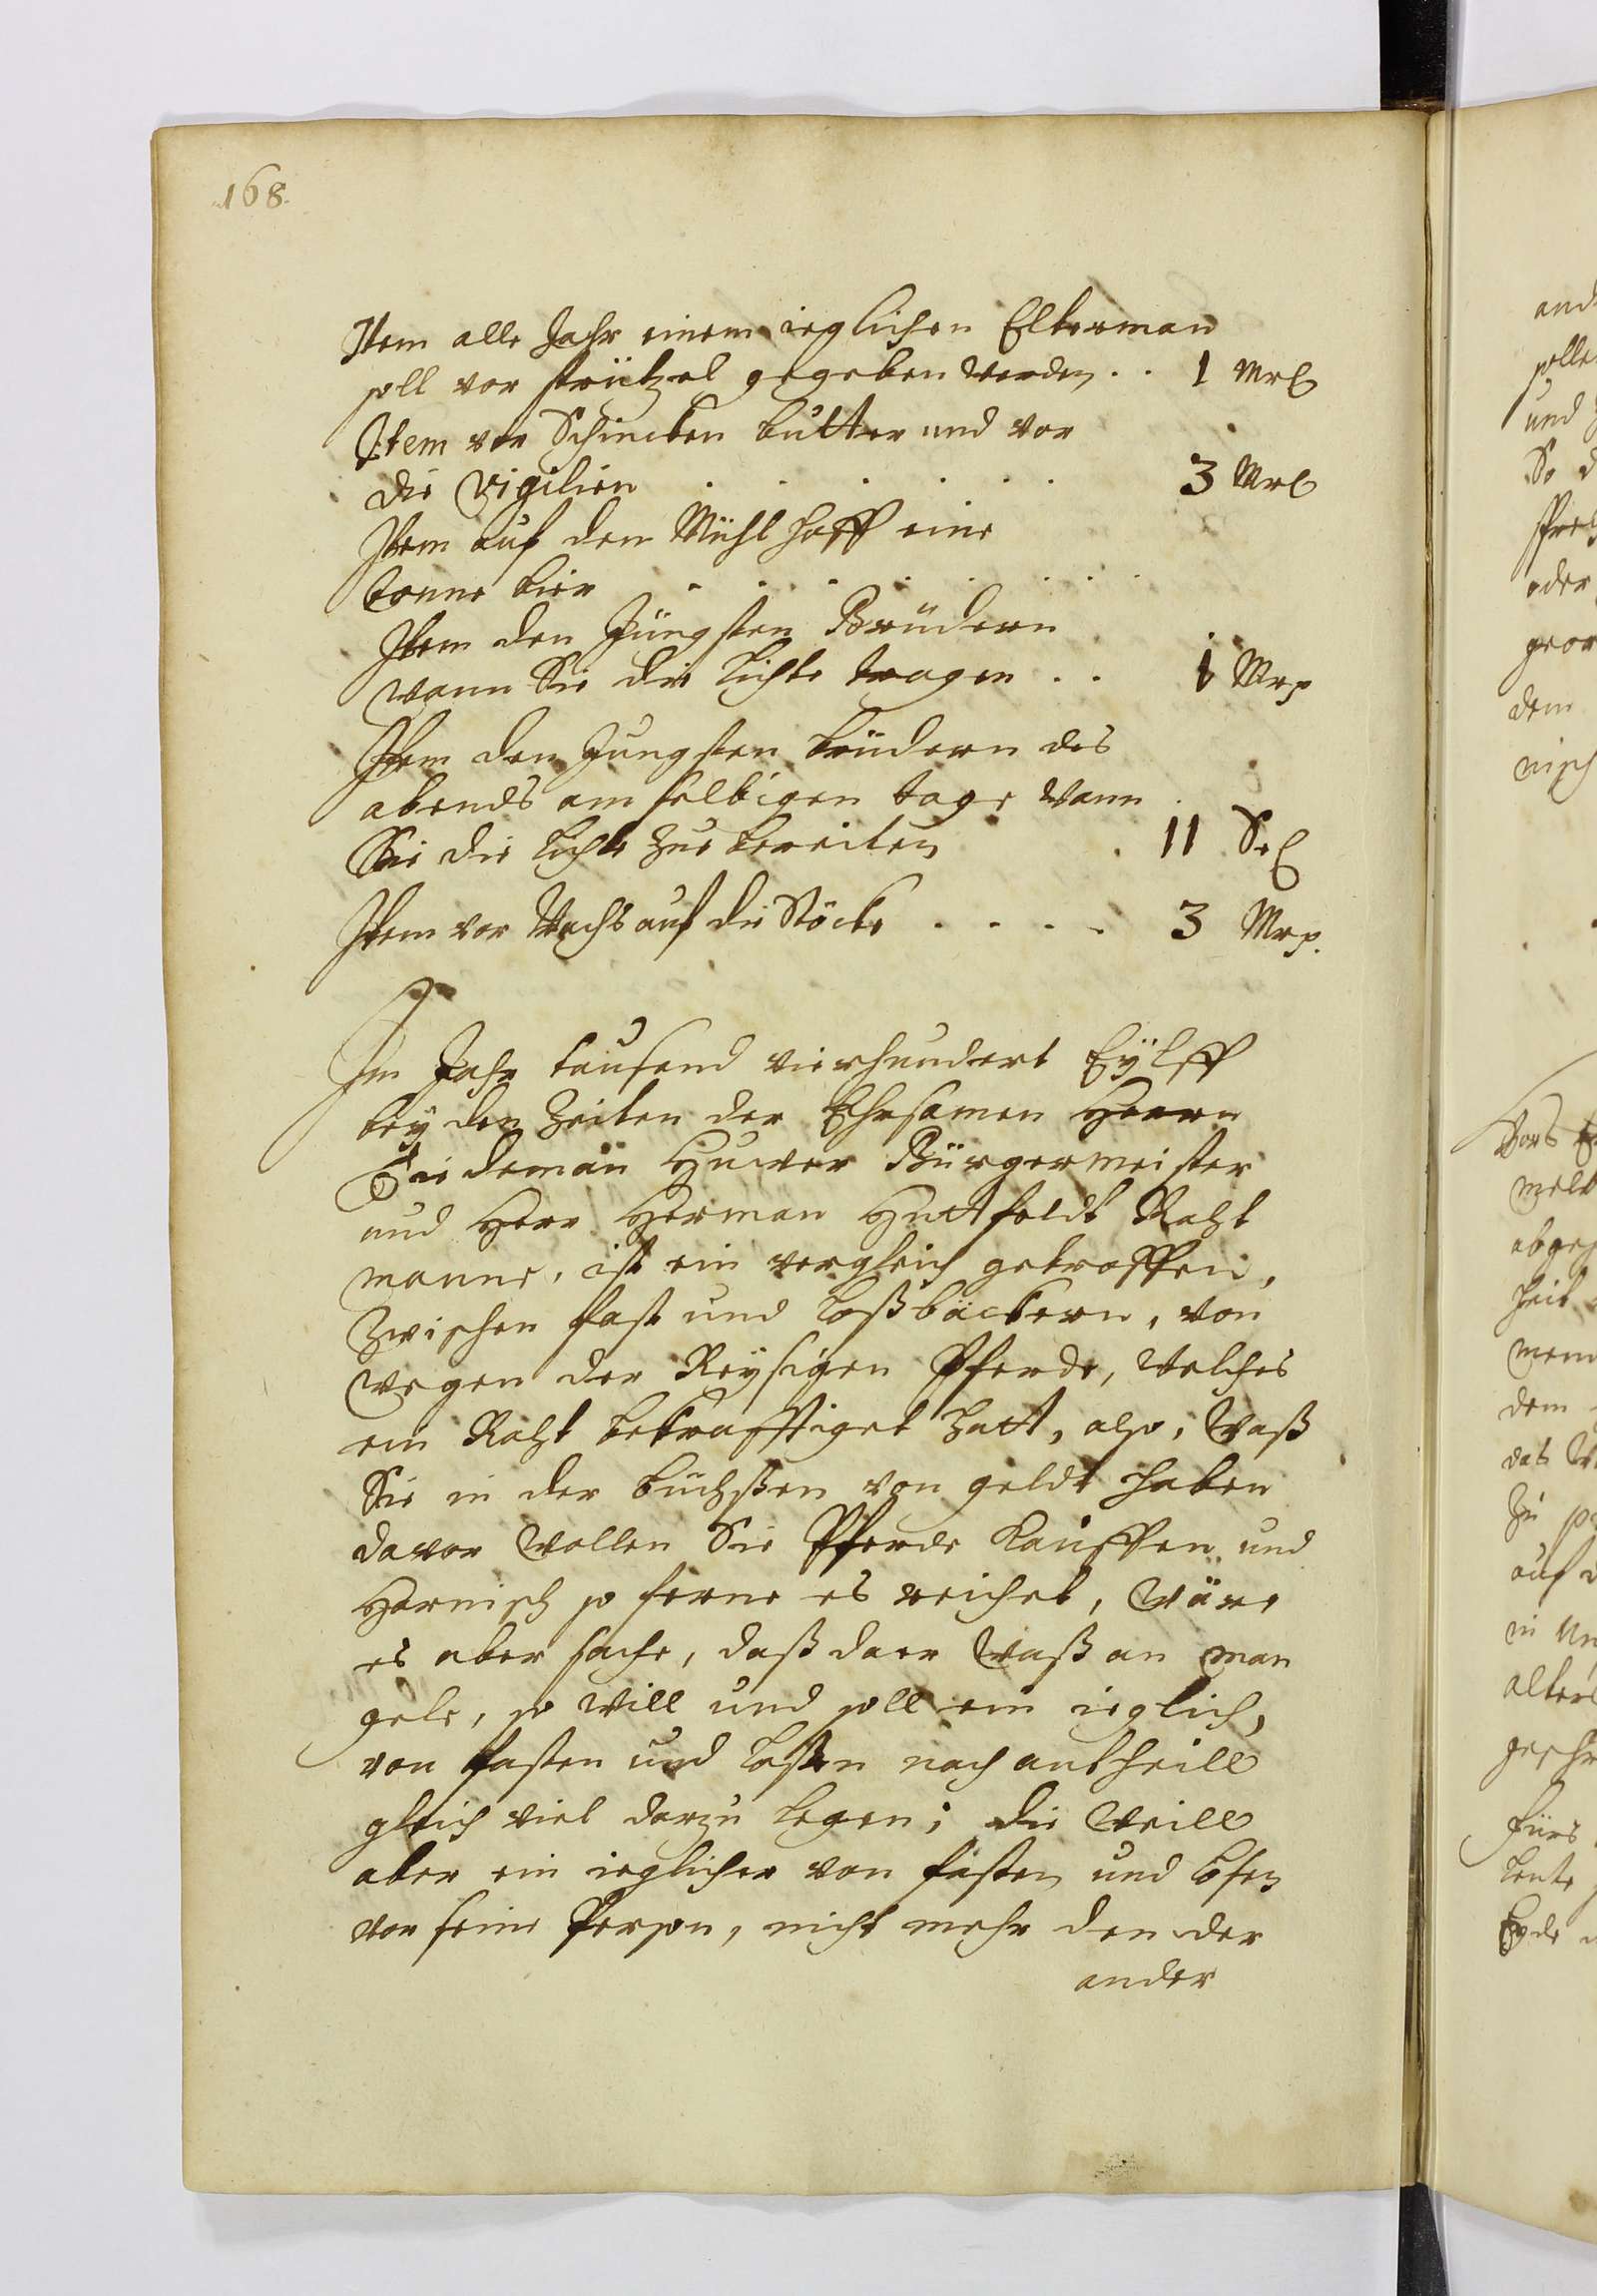 168.
Item alle Jahr einem ieglichen Elterman
soll vor strützel gegeben werden . . 1 Mrß
Item vor Schincken butter und vor
die Vigilien . . . . . . 3 Mrß
Item auf dem Mühlhoff eine
tonne bier . . . . . . . .
Item den Jüngsten Brüdern
wann Sie die Lichte tragen . . 1 Mrp
Item den Jungsten brüdern des
abends am selbigen tage wann
Sie die Lichte zue bereiten . 11 Srß
Item vor Wachs auf die Stöcke . . . . 3 Mrp.
Im Jahr tausend vierhundert Eÿlff
beÿ den Zeiten der Ehrsamen Herrn
Tiedeman Huxer Bürgermeister
und Herr Herman Huttfeldt Raht
manne, ist ein vergleich getroffen,
Zwischen fast und Loßbäckern, von
wegen der Reÿsigen Pferde, welches
ein Raht bekrafftiget hatt, also, waß
Sie in der büchßen von geldt haben
davor wollen Sie Pferde kauffen und
Harnisch so ferne es reichet, wäre
es aber sache, daß daer waß an man
gele, so will und soll ein ieglich,
von fasten und Losen nach antheill
gleich viel darzu legen; die weill
aber ein ieglicher von fasten und Losen
vor seine Person, nicht mehr den der
ander